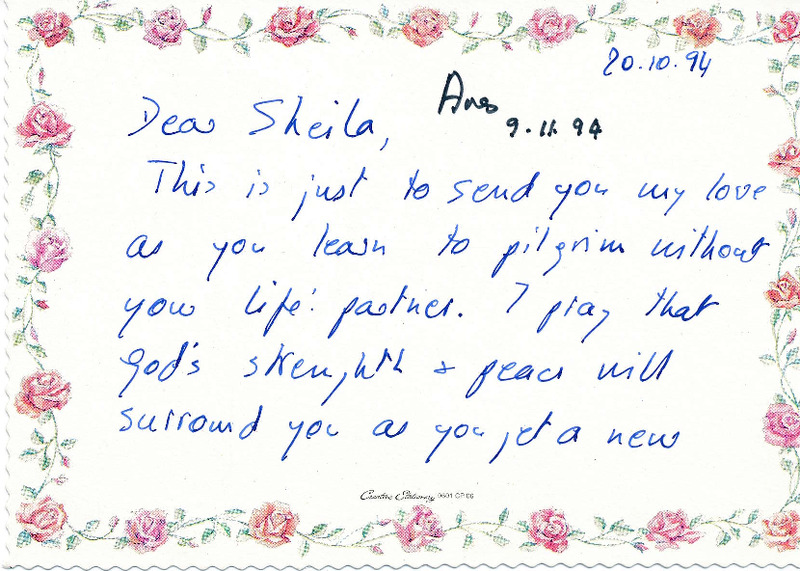 20.10.94
Dear Sheila,
Ans
9.11.94
This is just to send you my love
as you learn to pilgrim without
your life's partner. I pray that
God's strength + peace will
surround you as you get a new
Creative Stationery 9601 CP 06